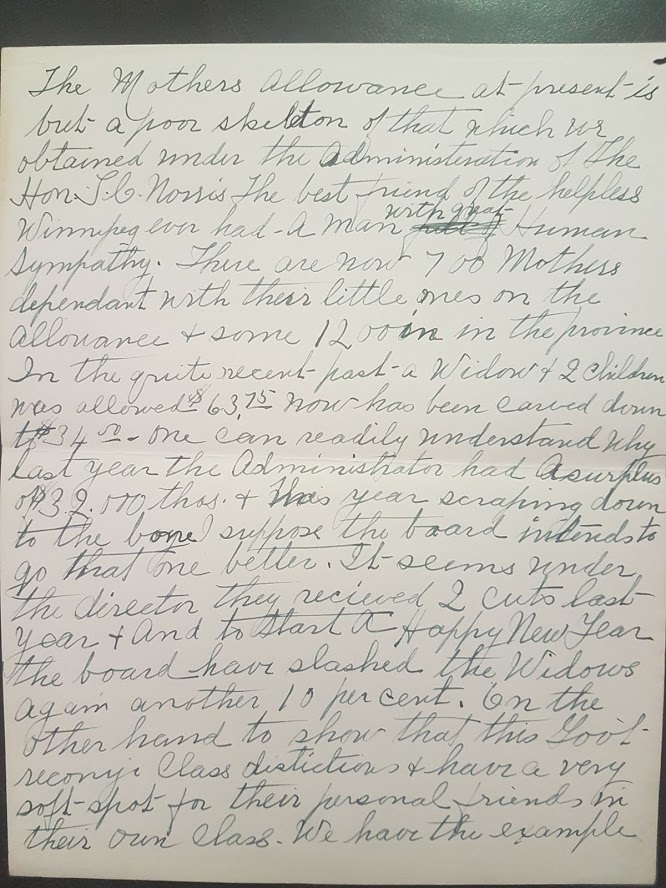 The Mothers Allowance at present is
but a poor skeleton of that which we
obtained under the Administration of The
Hon. T.C. Norris The best friend of the helpless
Winnipeg ever had - A man with great Human
Sympathy. There are now 700 Mothers
dependant with their little ones on the
Allowance & some 1200 in in the province
In the quite recent past a Widow & 2 Children
was allowed $63.75 now has been carved down
to $34.50 - one can readily understand why
last year the Administrator had A surplus
of $32.000 thos. & this year scraping down
to the bone I suppose the board intends to
go that one better. It seems under
the director they recieved 2 cuts last
year & And to start A Happy New Year
the board have slashed the Widows
again another 10 per cent. On the
other hand to show that this Gov't
reconize Class distictions & have a very
soft spot for their personal friends in
their own Class. We have the example